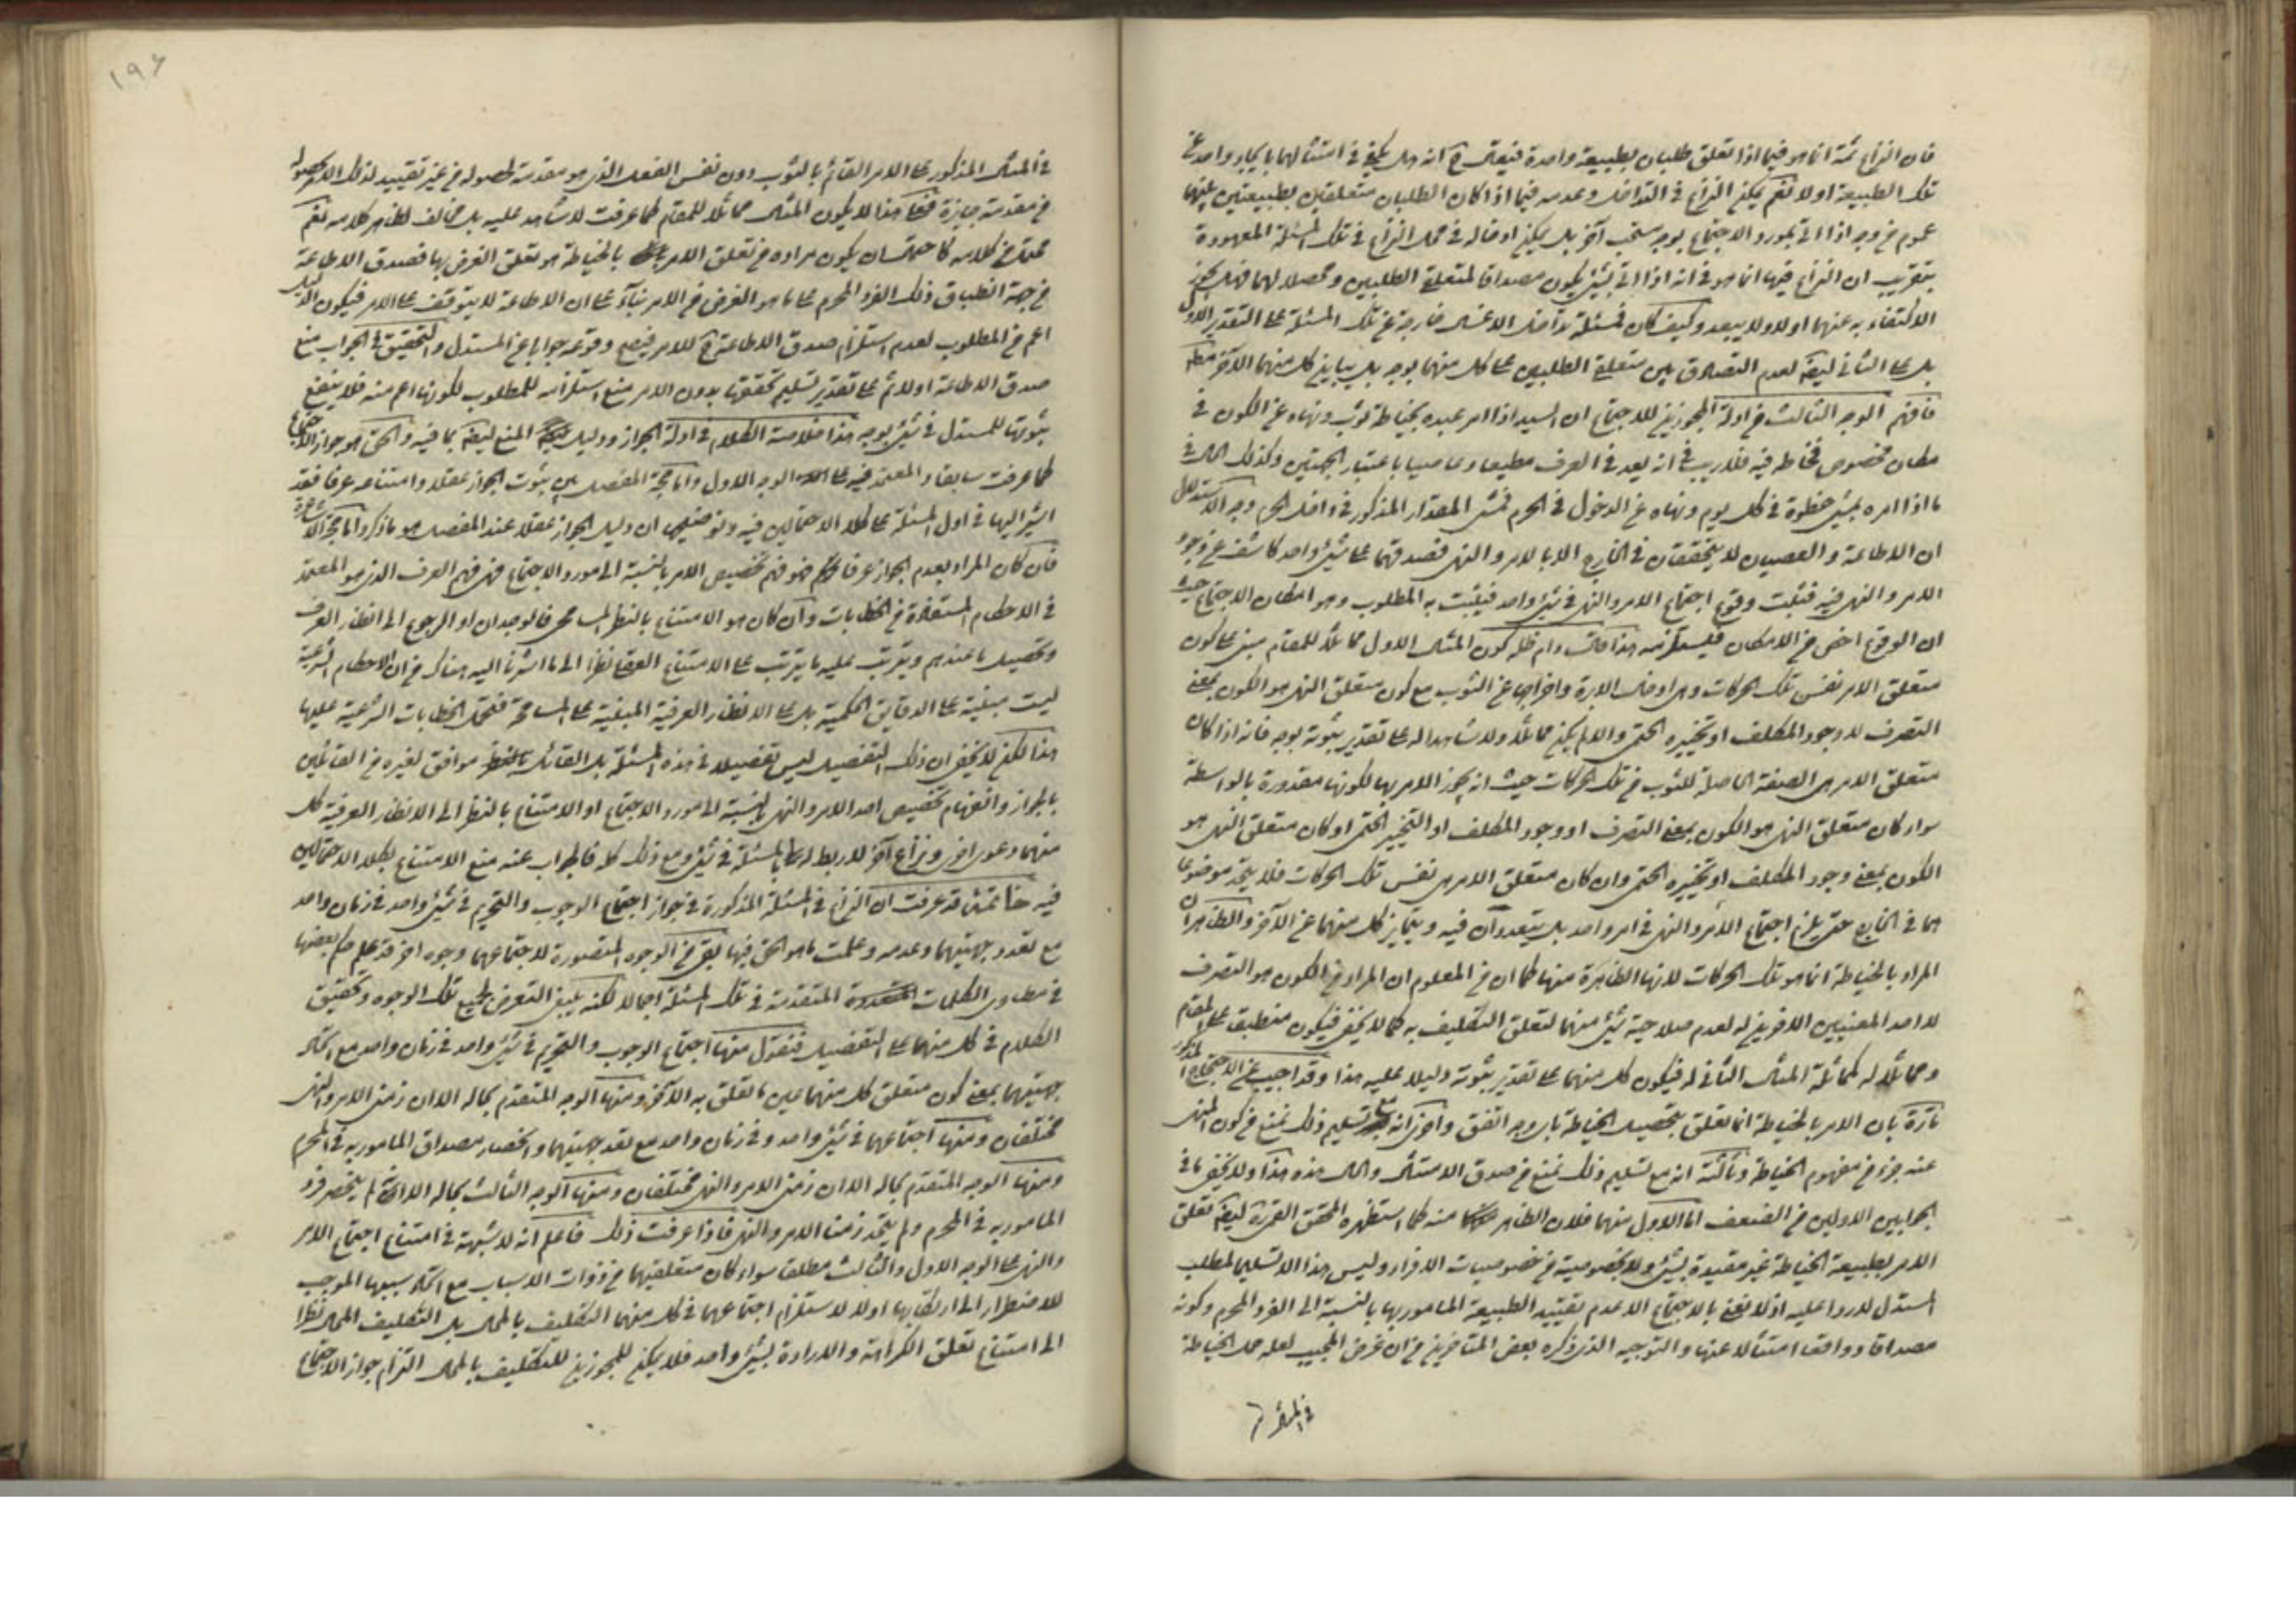 فان النزاع ثمة انما هو فيما اذا تعلق طلبان بطبيعة واحدة فيقال ح انه هل يكفى فى امتثالهما بايجاد واحد من
تلك الطبيعة او لا نعم يمكن النزاع فى التداخل وعدمه فيما اذا كان الطلبان متعلقين بطبيعتين بينهما
عموم من وجه اذا اتى بمورد الاجتماع بوجه آخر بل يمكن ادخاله فى محل النزاع فى تلك المسئلة المعهودة
بتقريب ان النزاع فيها انما هو فى انه اذا اتى بشئ يكون مصداقا لمتعلق الطلبين ومحصلا لهما فهل يجوز
الاكتفاء به عنهما او لا ولا يبعد وكيف كان فمسئلة تداخل الاغسال خارجة عن تلك المسئلة على التقدير الاول
بل على الثانى ايضا لعدم التصادق بين متعلق الطلبين على كل منهما بوجه بل يباين كل منهما الآخر
فافهم الوجه الثالث من ادلة المجوزين للاجتماع ان السيد اذا امر عبده بخياطة ثوب ونهاه عن الكون فى
مكان مخصوص فخاطه فيه فلا ريب فى انه يعد فى العرف مطيعا وعاصيا باعتبار الجهتين وكذلك الحال فى
ما اذا امره بمشى خطوة فى كل يوم ونهاه عن الدخول فى الحرم فمشى المقدار المذكور فى داخل الحرم وجه الاستدلال
ان الاطاعة والعصيان لا يتحققان فى الخارج الا بالامر والنهى فصدقهما على شئ واحد كاشف عن وجود
الامر والنهى فيه فثبت وقوع اجتماع الامر والنهى فى شئ واحد فيثبت به المطلوب وهو امكان الاجتماع حيث
ان الوقوع اخص من الامكان فيستلزمه هذا كون المثال الاول مماثلا للمقام مبنى على كون
متعلق الامر نفس تلك الحركات وهى ادخال الابرة واخراجها عن الثوب مع كون متعلق النهى هو الكون بمعنى
التصرف لا وجود المكلف او تحيزه الحتمى والا لم يكن مماثلا ولا شاهدا له على تقدير ثبوته بوجه فانه اذا كان
متعلق الامر هى الصفة الحاصلة للثوب من تلك الحركات حيث انه يجوز الامر بها لكونها مقدورة بالواسطة
سواء كان متعلق النهى هو الكون بمعنى التصرف او وجود المكلف او التحيز الحتمى او كان متعلق النهى هو
الكون بمعنى وجود المكلف او تحيزه الحتمى وان كان متعلق الامر هى نفس تلك الحركات فلا يتحد موضوعا
هما فى الخارج حتى يلزم اجتماع الامر والنهى فى امر واحد بل يتعددان فيه ويتمايز كل منهما عن الآخر والظاهر ان
المراد بالخياطة انما هو تلك الحركات لانها الظاهرة منها كما ان من المعلوم ان المراد من الكون هو التصرف
لا احد المعنيين الاخرين له لعدم صلاحية شئ منهما لتعلق التكليف به كما لا يخفى فيكون منطبقا على المقام
ومماثلا له كمماثلة المثال الثانى له فيكون كل منهما على تقدير ثبوته دليلا عليه هذا وقد اجيب عن الاحتجاج المذكور
تارة بان الامر بالخياطة انما تعلق بتحصيل الخياطة باى وجه اتفق واخرى انه مع تسليم ذلك نمنع من كون المنهى
عنه جزء من مفهوم الخياطة وثالثة انه مع تسليم ذلك نمنع من صدق الامتثال والحال هذه هذا ولا يخفى ما فى
الجوابين الاولين من الضعف اما الاول منهما فلان الظاهر منه كما استظهره المحقق القمى ره ايضا تعلق
الامر بطبيعة الخياطة غير مقيدة بشئ ولا بخصوصية من خصوصيات الافراد وليس هذا الا تسليما لمطلب
المستدل لا ردا عليه اذ لا نعنى بالاجتماع الا عدم تقييد الطبيعة المامور بها بالنسبة الى الفرد المحرم وكونه
مصداقا وواقعا امتثالا عنها والتوجيه الذى ذكره بعض المتاخرين من ان غرض المجيب لعله حمل الخياطة
فى المثال
١٩٦
فى المثال المذكور على الامر القائم بالثوب دون نفس الفعل الذى هو مقدمة لحصوله من غير تقييد لذلك الامر بحصوله
من مقدمة جايزة هذا لا يكون المثال مماثلا للمقام كما عرفت لا شاهد عليه بل مخالف لظاهر كلامه نعم
من كلامه ان يكون مراده من تعلق الامر بالخياطة هو تعلق الغرض بها فصدق الاطاعة
من جهة انطباق ذلك الفرد المحرم على ما هو الغرض من الامر بناء على ان الاطاعة لا يتوقف على الامر فيكون الدليل
اعم من المطلوب لعدم استلزام صدق الاطاعة ح للامر فيصح وقوعه جوابا عن المستدل والتحقيق فى الجواب منع
صدق الاطاعة اولا ثم على تقدير تسليم تحققها بدون الامر منع استلزامه للمطلوب لكونها اعم منه فلا ينفع
ثبوتها للمستدل فى شئ بوجه هذا خلاصة الكلام فى ادلة الجواز ودليل المنع ايضا بما فيه والحق هو جواز الاجتماع
كما عرفت سابقا والمعتمد فيه على الوجه الاول واما حجة المفصل بين ثبوت الجواز عقلا وامتناعه عرفا فقد
اشير اليها فى اول المسئلة على كلا الاحتمالين فيه وتوضيحها ان دليل الجواز عقلا عند المفصل هو ما ذكر واما حجة الا
فان كان المراد بعدم الجواز عرفا هو فهم تخصيص الامر بالنسبة الى مورد الاجتماع فهى فهم العرف الذى هو المعتمد
فى الاحكام المستفادة من الخطابات وان كان هو الامتناع بالنظر المسامحى فالوجدان او الرجوع الى انظار العرف
وتحصيل ما عندهم ويترتب عليه ما يترتب على الامتناع العقلى نظرا الى ما اشرنا اليه هناك من ان الاحكام الشرعية
ليست مبنية على الدقائق الحكمية بل على الانظار العرفية المبنية على المسامحة فتحمل الخطابات الشرعية عليها
هذا لكن لا يخفى ان ذلك التفصيل ليس تفصيلا فى هذه المسئلة بل القائل موافق لغيره من القائلين
بالجواز وانفهام تخصيص احد الامر والنهى بالنسبة الى مورد الاجتماع او الامتناع بالنظر الى الانظار العرفية كل
منهما دعوى اخرى ونزاع آخر لا ربط له بالمسئلة فى شئ ومع ذلك كله فالجواب عنه منع الامتناع بكلا الاحتمالين
فيه خاتمة قد عرفت ان النزاع فى المسئلة المذكورة فى جواز اجتماع الوجوب والتحريم فى شئ واحد فى زمان واحد
مع تعدد جهتيهما وعدمه وعلمت ما هو الحق فيها بقى من الوجوه المتصورة لاجتماعهما وجوه اخر قد علم حكم بعضها
فى مطاوى الكلمات المتقدمة فى تلك المسئلة اجمالا لكنه ينبغى التعرض لجميع تلك الوجوه وتحقيق
الكلام فى كل منهما على التفصيل فنقول منها اجتماع الوجوب والتحريم فى شئ واحد فى زمان واحد مع اتحاد
جهتيهما بمعنى كون متعلق كل منهما عين ما تعلق به الآخر ومنها الوجه المتقدم بحاله الا ان زمنى الامر والنهى
مختلفان ومنها اجتماعهما فى شئ واحد وفى زمان واحد مع تعدد جهتيهما وانحصار مصداق المامور به فى المحرم
ومنها الوجه المتقدم بحاله الا ان زمنى الامر والنهى مختلفان ومنها الوجه الثالث بحاله الا انه لم ينحصر فرد
المامور به فى المحرم ولم يتحد زمنا الامر والنهى فاذا عرفت ذلك فاعلم انه لا شبهة فى امتناع اجتماع الامر
والنهى على الوجه الاول والثالث مطلقا سواء كان متعلقيهما من ذوات الاسباب مع اتحاد سببها الموجب
للاضطرار الى ارتكابها او لا لاستلزام اجتماعهما فى كل منهما التكليف بالمحال بل التكليف المحال نظرا
الى امتناع تعلق الكراهة والارادة بشئ واحد فلا يمكن للمجوزين للتكليف بالمحال التزام جواز الاجتماع